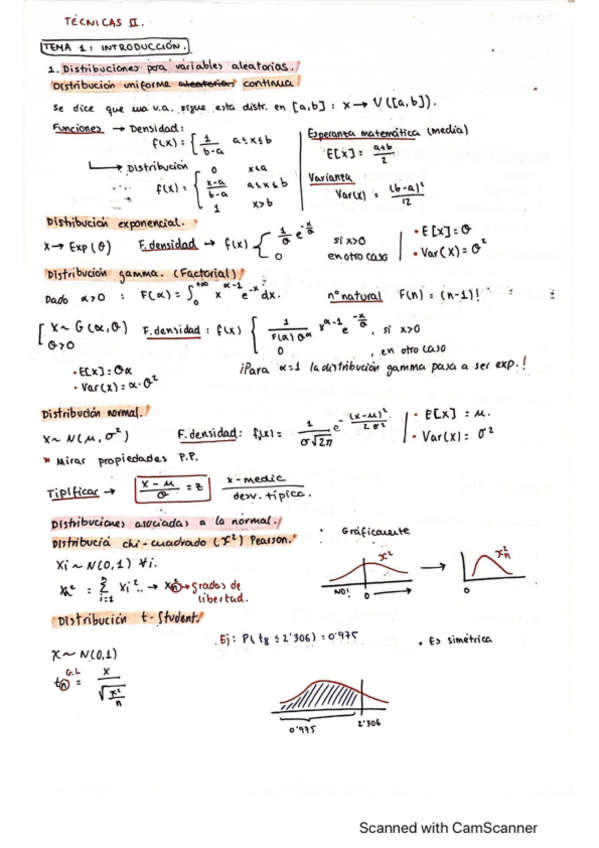 TÉCNICAS II.
TEMA 1: INTRODUCCIÓN.
1. Distribuciones para variables aleatorias.
Distribución uniforme aleatorian continua
Se dice que una v.a. sigue esta distr. en [a,b] : x → U ([a,b]).
Funciones → Densidad:
f(x) = { 1/(b-a) a≤x≤b
Esperanza matemática (media)
E[x] = (a+b)/2
→ Distribución
f(x) = { 0 x<a
(x-a)/(b-a) a≤x≤b
1 x>b
Varianza
Var(x) = (b-a)²/12
Distribución exponencial.
x → Exp (θ) F. densidad → f(x) { 1/θ e^(-x/θ) si x>0
0 en otro caso
• E[x] = θ
• Var(x) = θ²
Distribución gamma. (Factorial)
Dado α>0 : Γ(α) = ∫₀^(+∞) x^(α-1) e^(-x) dx. nº natural Γ(n) = (n-1)!
[ x ~ G(α,θ) F. densidad : f(x) { 1/(Γ(α) θ^α) x^(α-1) e^(-x/θ), si x>0
θ>0
0 , en otro caso
• E[x] = θα
• Var(x) = α·θ²
¡Para α=1 la distribución gamma pasa a ser exp.!
Distribución normal.
x ~ N(μ, σ²) F. densidad: f(x) = 1/(σ√2π) e^(-(x-μ)²/2σ²)
• E[x] = μ.
• Var(x) = σ²
* Mirar propiedades P.P.
Tipificar → (x-μ)/σ = z x-medic / desv. típica.
Distribuciones asociadas a la normal.
Distribucia chi-cuadrado (x²) Pearson.
• Gráficamente
Xi ~ N(0,1) ∀i.
Xn² = Σ(i=1, n) Xi².. → Xn² → grados de
libertad.
x²
NO! 0
xn²
0
Distribución t-Student.
Ej: P(t8 ≤ 2'306) = 0'975
• Es simétrica
X ~ N(0,1)
G.L
tn = x/√(x²/n)
0'975
2'306
Scanned with CamScanner